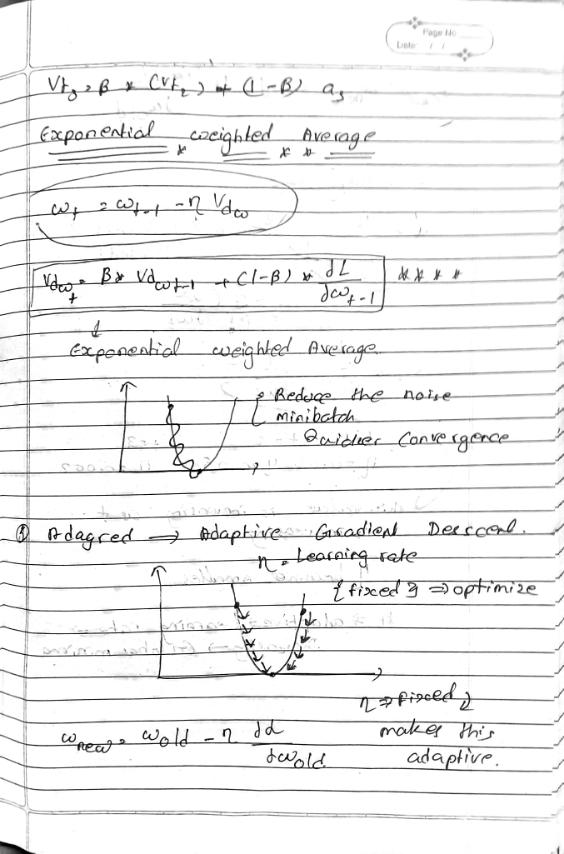 Page No
Date: / /
Vt₃ = β * (Vt₂) + (1-β) a₃
Exponential weighted Average
* * *
ωt = ωt-1 - η Vdω
Vdωt = β * Vdωt-1 + (1-β) * dL/dωt-1 * * * *
↓
Exponential weighted Average.
Reduce the noise
minibatch
Quicker Convergence
Adagred ⇒ Adaptive Gradient Desscent.
η = Learning rate
{fixed} ⇒ optimize
η ⇒ fixed }
ωnew = ωold - η dL/dωold makes this
adaptive.